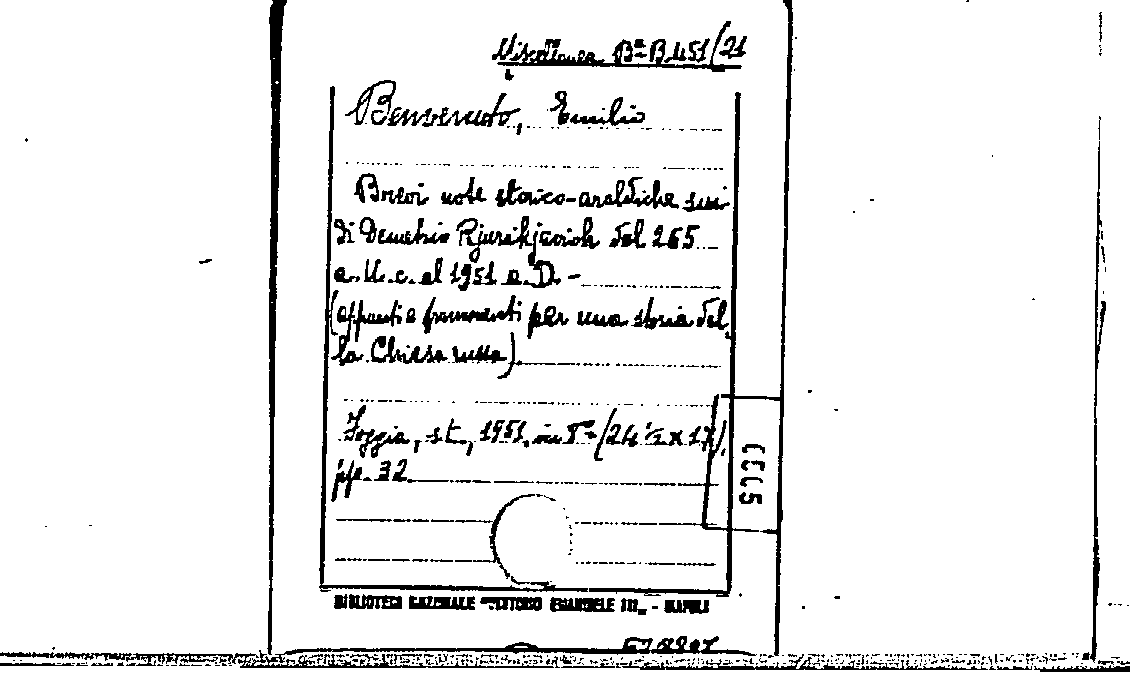 Miscellanea Bª B.451/21
Benvenuto, Emilio
Brevi note storico-araldiche sui
di Demetrio Rjurikjevich dal 265
a.U.c. al 1951 a.D. -
(appunti e frammenti per una storia del-
la Chiesa russa).
Foggia, s.t., 1951, in 8º (24 ½ x 17),
pp. 32
BIBLIOTECA NAZIONALE "VITTORIO EMANUELE III" - NAPOLI